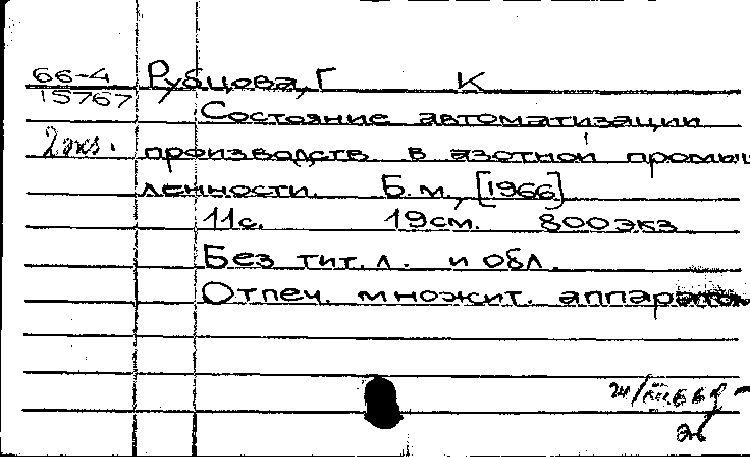 66-4 Рубцова, Г К
15767
Состояние автоматизации
2 экз. производств в азотной промыш
ленности. Б.м., [1966]
11с. 19см. 800экз
Без тит.л. и обл.
Отпеч. множит. аппаратом